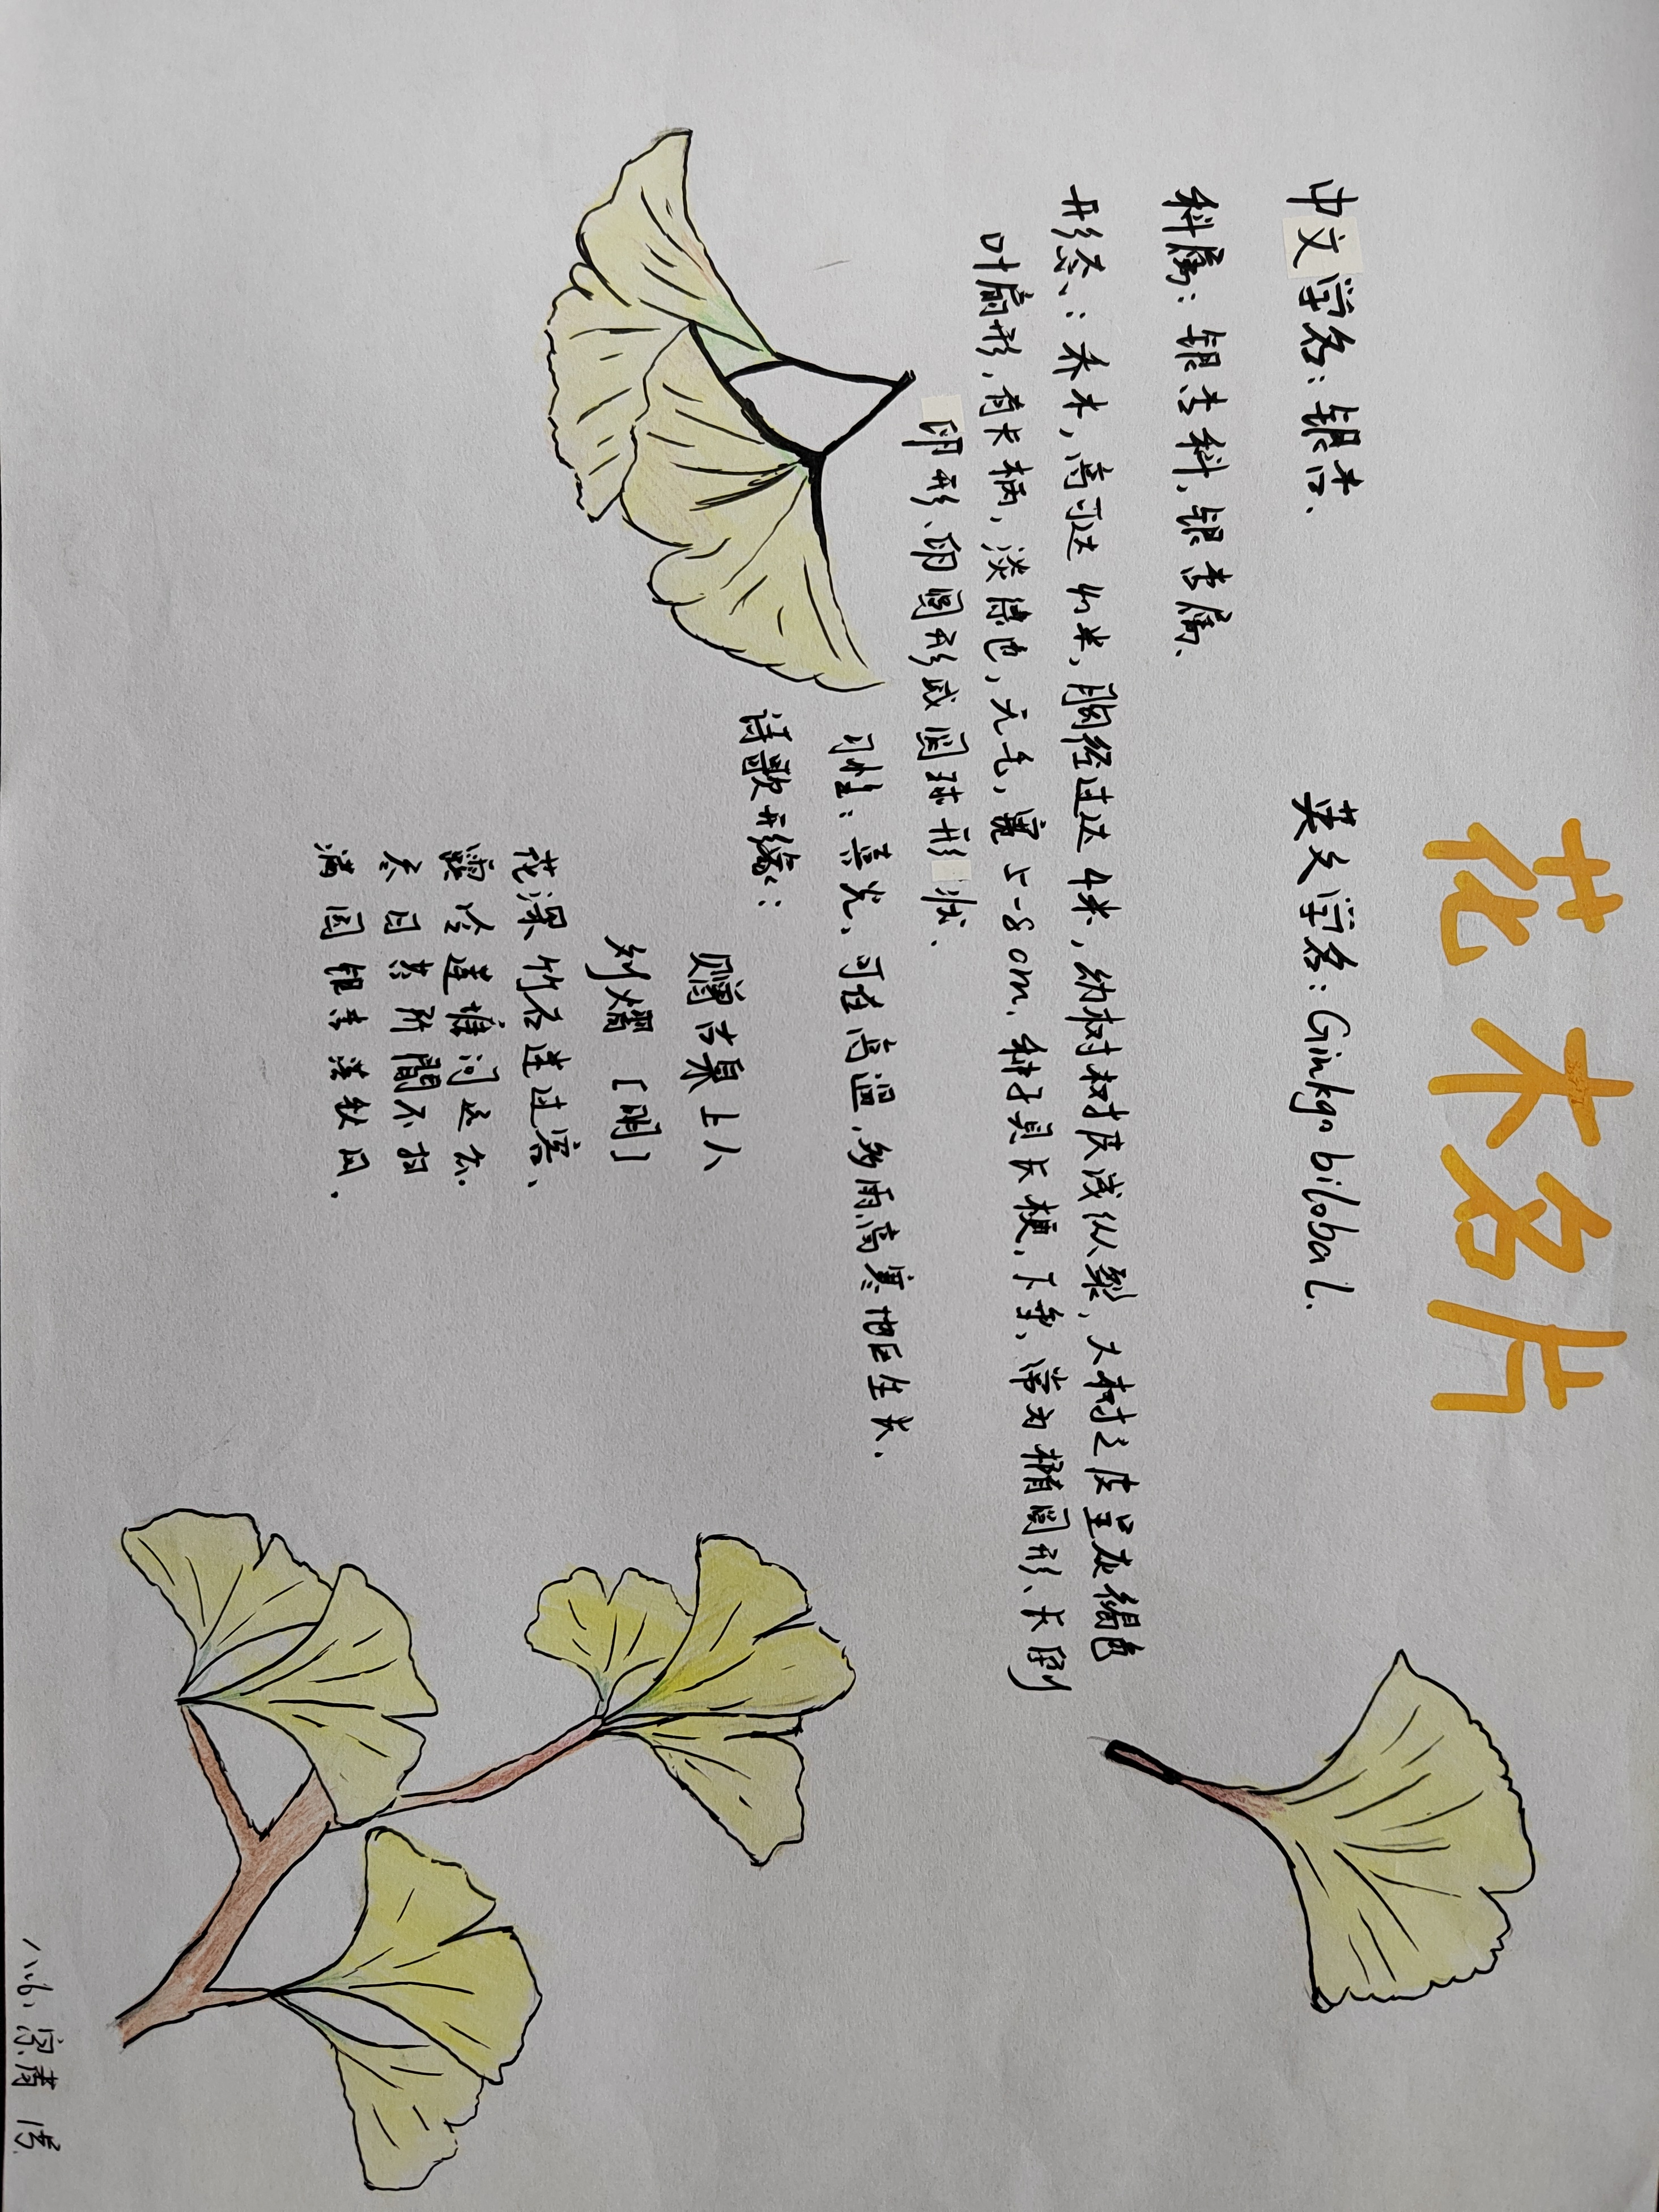 花木名片
中文学名：银杏. 英文学名：Ginkgo biloba L.
科属：银杏科, 银杏属.
形态：乔木, 高可达40米, 胸径可达4米, 幼树树皮浅纵裂, 大树之皮呈灰褐色
叶扇形, 有长柄, 淡绿色, 无毛, 宽5-8cm. 种子具长梗, 下垂, 常为椭圆形、长倒
卵形、卵圆形或圆球形状.
习性：喜光, 可在高温, 多雨, 高寒地区生长.
诗歌形缘：
赠古泉上人
刘熠 [明]
花深竹石连过客,
露冷莲塘问远公.
尽日苔阶閒不扫
满园银杏落秋风.